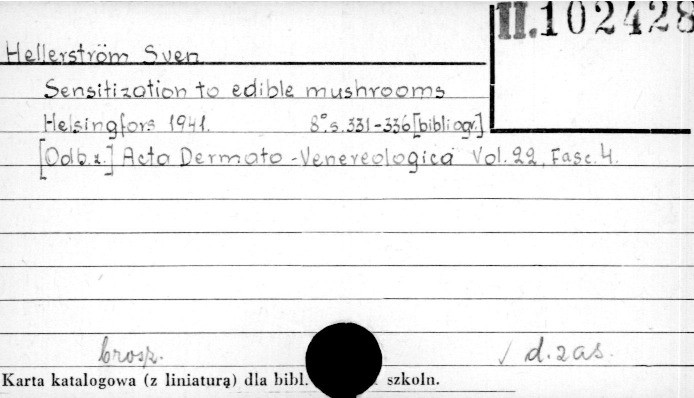 II.102428
Hellerström Sven
Sensitization to edible mushrooms
Helsingfors 1941. 8°.s.331-336[bibliogr.]
[Odb.z.] Acta Dermato-Venereologica Vol.22, Fasc.4.
brosz. √ d.zas.
Karta katalogowa (z liniaturą) dla bibl. szkoln.